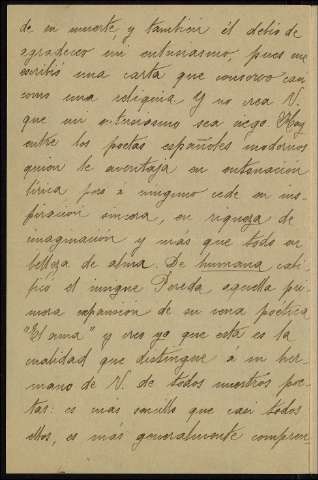 de su muerte, y también él debió de
agradecer mi entusiasmo, pues me
escribió una carta que conservo casi
como una reliquia. Y no crea V.
que mi entusiasmo sea ciego. Hay
entre los poetas españoles modernos
quien le aventaja en entonación
lírica pero a ninguno cede en ins-
piración sincera, en riqueza de
imaginación y más que todo en
belleza de alma. De humana cali-
ficó el insigne Pereda aquella pri-
mera expansión de su vena poética
"El ama" y creo yo que esta es la
cualidad que distingue a su her-
mano de V. de todos nuestros poe-
tas: es mas sencillo que casi todos
ellos, es más generalmente compren